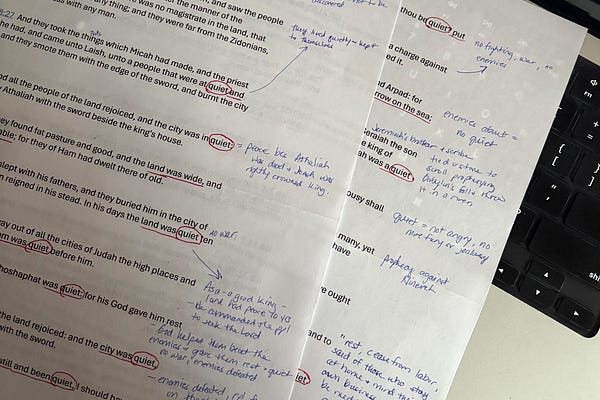 and saw the people
the manner of the
was no magistrate in the land, that
thing; and they were far from the Zidonians,
with any man.
they lived quietly - kept
to themselves
8:27 And they took the things which Micah had made, and the priest
he had, and came unto Laish, unto a people that were at quiet and
and they smote them with the edge of the sword, and burnt the city
nd all the people of the land rejoiced, and the city was in quiet:
Athaliah with the sword beside the king's house.
= peace bec Athaliah
was dead + Joash was
rightly crowned king.
ey found fat pasture and good, and the land was wide, and
able: for they of Ham had dwelt there of old.
slept with his fathers, and they buried him in the city of
n reigned in his stead. In his days the land was quiet ten
no war
ay out of all the cities of Judah the high places and
m was quiet before him.
Asa - a good king -
land had peace 10 yrs
- He commanded the ppl
to seek the Lord
hoshaphat was quiet: for his God gave him rest
- God helped them beat the
enemies + gave them rest - quiet
no war, enemies defeated
the land rejoiced: and the city was quiet,
with the sword.
- enemies defeated, ppl
still and been quiet, I should have
thou be quiet? put
no fighting, war, no
enemies
a charge against
ed it.
and Arpad: for
rrow on the sea;
enemies about =
no quiet
Jeremiah's brother + scribe
tied a stone to
scroll prophesying
Babylon's fall + threw
it in a river
eraiah the son
e king of
ah was a quiet
ousy shall
quiet = not angry, no
more fury or jealousy
many, yet
have
Prophecy against
Nineveh
e ought
and to
"rest, cease from labor,
said of those who stay
at home + mind their
own business